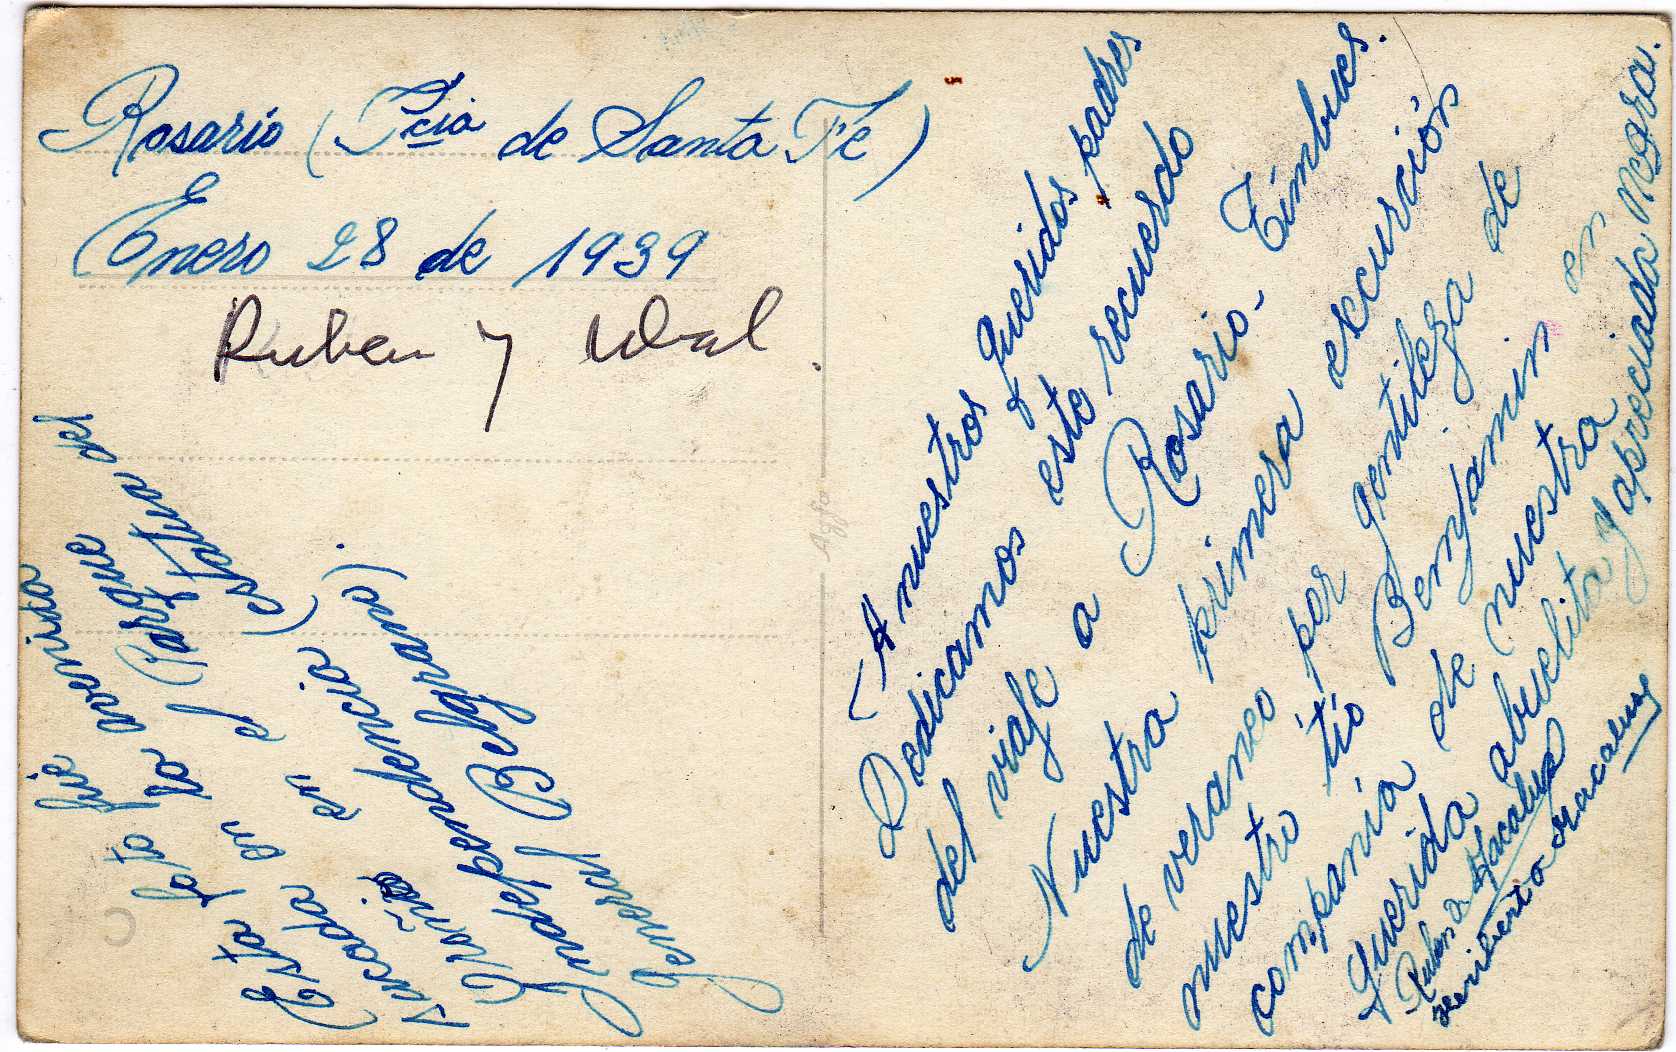 Rosario (Pcia de Santa Fé)
Enero 28 de 1939
Ruben y
(Esta foto fué
sacada en la avenida
en el Parque
Independencia (estatua del
General Belgrano).
Agfa
(A nuestros queridos padres
Dedicamos este recuerdo
del viaje a Rosario - Timbues.
Nuestra primera escurción
de veraneo por gentileza de
nuestro tío Benjamin en
compania de nuestra
querida abuelita y apreciada Mora.
Ruben